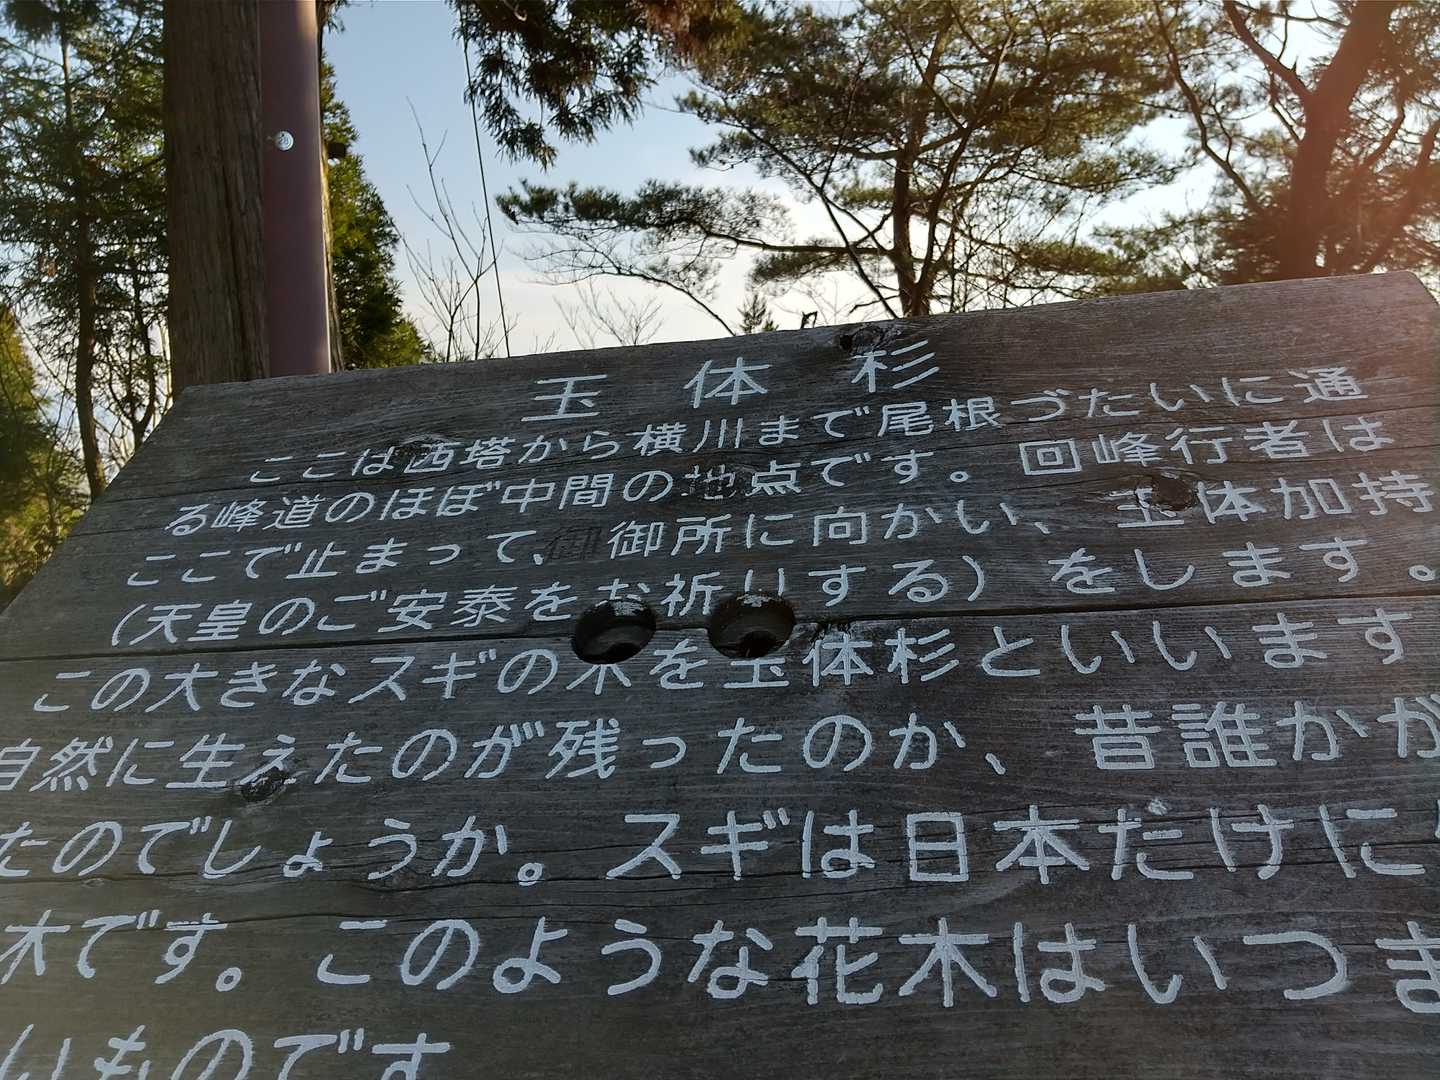 28
玉体杉
ここは西塔から横川まで尾根づたいに通
る峰道のほぼ中間の地点です。回峰行者は
ここで止まって、御所に向かい、玉体加持
(天皇のご安泰をお祈りする)をします。
この大きなスギの木を玉体杉といいます
自然に生えたのが残ったのか、昔誰かが
たのでしょうか。スギは日本だけに
木です。このような花木はいつま
いものです